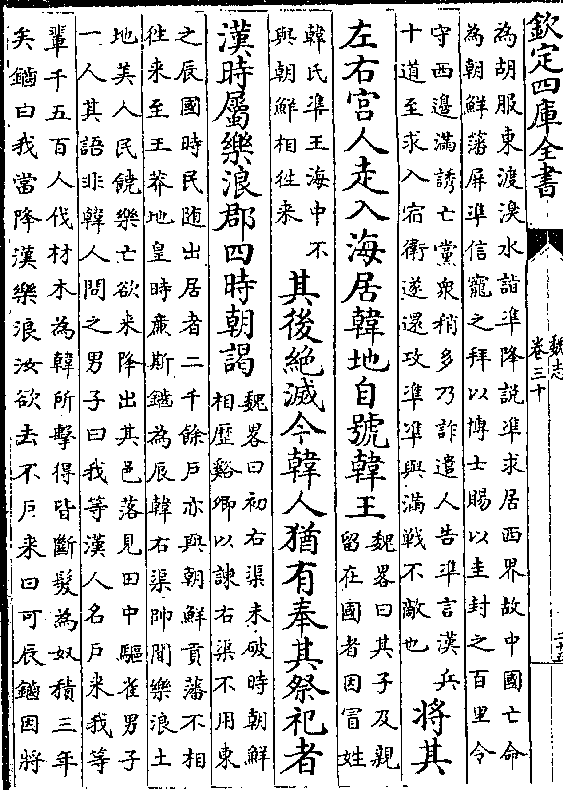 欽定四庫全書
魏志
卷三十
為胡服東渡溴水詣準降說準求居西界故中國亡命
為朝鮮藩屏準信寵之拜以博士賜以圭封之百里令
守西邊滿誘亡黨衆稍多乃詐遣人告準言漢兵
十道至求入宿衛遂還攻準準與滿戰不敵也
將其
左右宫人走入海居韓地自號韓王
魏畧曰其子及親
留在國者因冒姓
韓氏準王海中不
與朝鮮相徃來
其後絶滅今韓人猶有奉其祭祀者
漢時屬樂浪郡四時朝謁
魏畧曰初右渠未破時朝鮮
相歷谿卿以諫右渠不用東
之辰國時民隨出居者二千餘户亦與朝鮮貢藩不相
徃來至王莽地皇時亷斯鑡為辰韓右渠帥聞樂浪土
地美人民饒樂亡欲來降出其邑落見田中驅雀男子
一人其語非韓人問之男子曰我等漢人名户來我等
輩千五百人伐材木為韓所擊得皆斷髮為奴積三年
矣鑡曰我當降漢樂浪汝欲去不户來曰可辰鑡因將